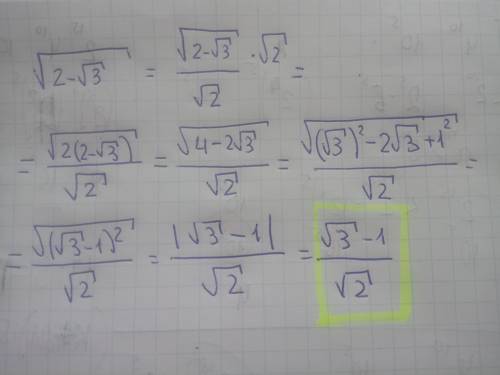 √(2-√3) = √(2-√3)/√2 · √2 =
= √(2(2-√3))/√2 = √(4-2√3)/√2 = √((√3)²-2√3+1²)/√2 =
= √((√3-1)²)/√2 = |√3-1|/√2 = (√3-1)/√2